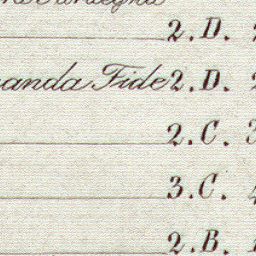 2. D.
anda Fide 2. D.
2. C.
3. C.
2. B.